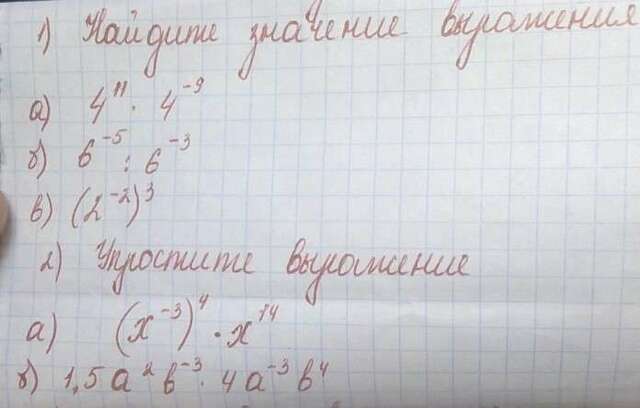 1) Найдите значение выражения
а) 4¹¹ · 4⁻⁹
б) 6⁻⁵ : 6⁻³
в) (2⁻²)³
2) Упростите выражение
а) (x⁻³)⁴ · x¹⁴
б) 1,5 a² b⁻³ · 4 a⁻³ b⁴